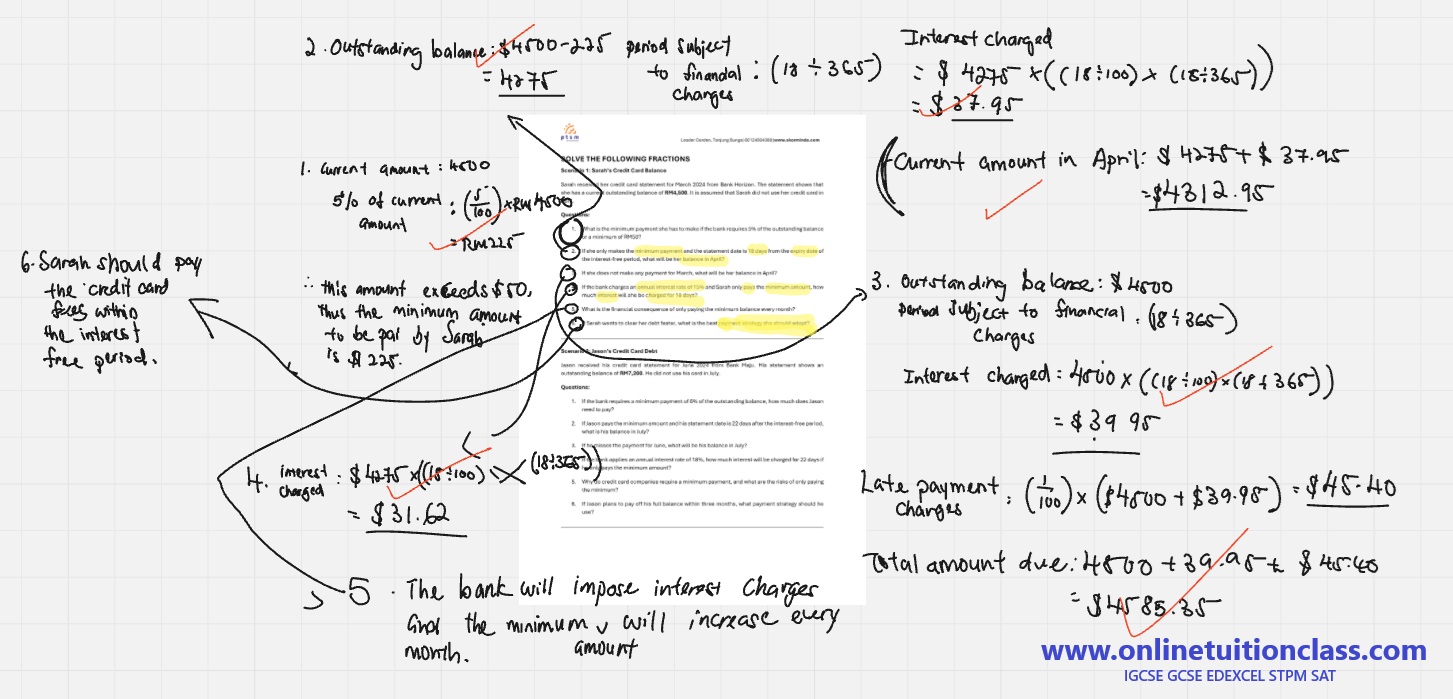 2. Outstanding balance: $4500-225
= 4275
period subject
to financial : (18 ÷ 365)
charges
Interest charged
= $ 4275 × ((18÷100) × (18÷365))
= $37.95
Current amount in April: $4275 + $ 37.95
= $4312.95
1. Current amount : 4500
5% of current : (5/100) × RM4500
amount
= RM225
∴ this amount exceeds $50,
thus the minimum amount
to be pai by Sarah
is $ 225.
6. Sarah should pay
the credit card
fees within
the interest
free period.
ptsm
Leader Garden, Tanjung Bungah
SOLVE THE FOLLOWING FRACTIONS
Scenario 1: Sarah's Credit Card Balance
Sarah received her credit card statement for March 2024 from Bank Horizon. The statement shows that
she has a current outstanding balance of RM4,500. It is assumed that Sarah did not use her credit card in
Questions:
1. What is the minimum payment she has to make if the bank requires 5% of the outstanding balance
or a minimum of RM50?
2. If she only makes the minimum payment and the statement date is 18 days from the expiry date of
the interest-free period, what will be her balance in April?
If she does not make any payment for March, what will be her balance in April?
If the bank charges an annual interest rate of and Sarah only pays the minimum amount, how
much interest will she be charged for 18 days?
What is the financial consequence of only paying the minimum balance every month?
Sarah wants to clear her debt faster, what is the best payment strategy she should adopt?
Scenario 2: Jason's Credit Card Debt
Jason received his credit card statement for June 2024 from Bank Maju. His statement shows an
outstanding balance of RM7,200. He did not use his card in July.
Questions:
1. If the bank requires a minimum payment of 5% of the outstanding balance, how much does Jason
need to pay?
2. If Jason pays the minimum amount and his statement date is 22 days after the interest-free period,
what is his balance in July?
3. If he misses the payment for June, what will be his balance in July?
bank applies an annual interest rate of 18%, how much interest will be charged for 22 days if
only pays the minimum amount?
5. Why do credit card companies require a minimum payment, and what are the risks of only paying
the minimum?
6. If Jason plans to pay off his full balance within three months, what payment strategy should he
use?
3. Outstanding balance: $ 4500
period subject to financial : (18÷365)
charges
Interest charged = 4500 × ((18÷100)×(18÷365))
= $39.95
Late payment : (1/100) × ($4500 + $39.95) = $45.40
charges
Total amount due: 4500 + 39.95 + $ 45.40
= $4585.35
4. interest : $4275 × ((18÷100) × (18÷365))
charged
= $31.62
5. The bank will impose interest charges
and the minimum amount will increase every
month.
www.onlinetuitionclass.com
IGCSE GCSE EDEXCEL STPM SAT